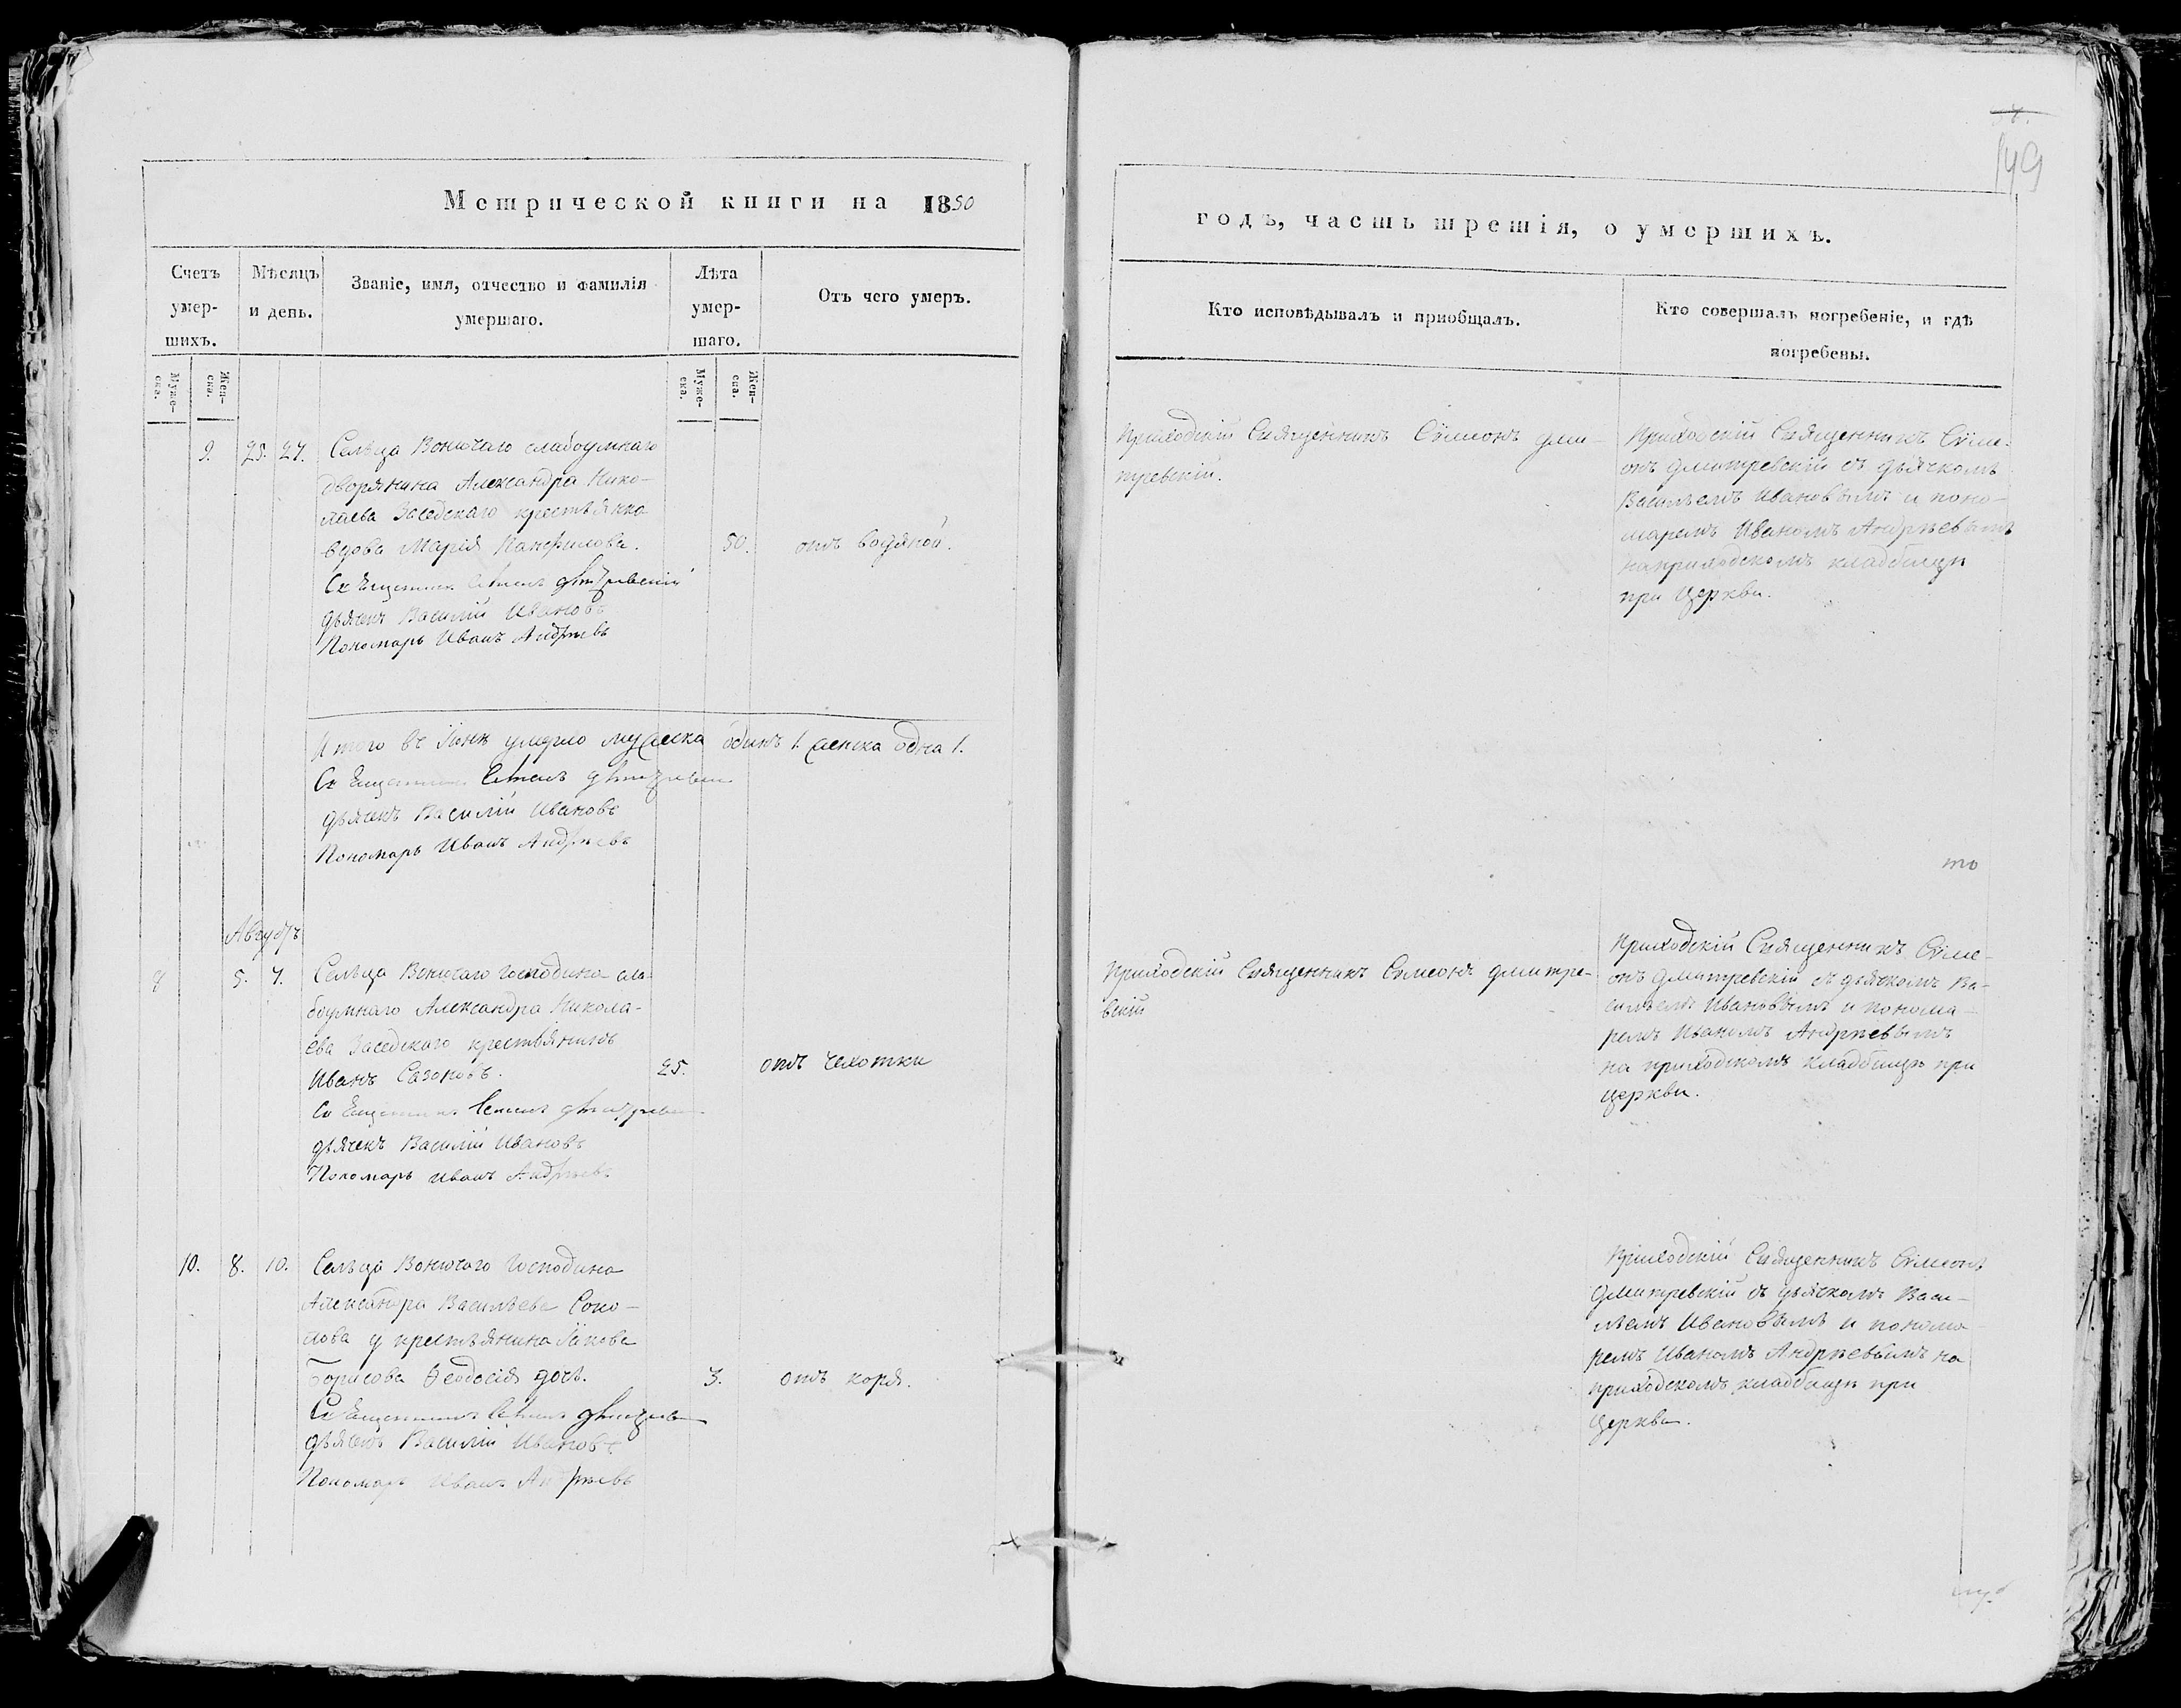 149
Метрической книги на 1850
годъ, часть третія, о умершихъ.
Счетъ умер-шихъ.
Мѣсяцъ и день.
Званіе, имя, отчество и фамилія умершаго.
Лѣта умер-шаго.
Отъ чего умеръ.
Кто исповѣдывалъ и пріобщалъ.
Кто совершалъ погребеніе, и гдѣ погребены.
Муже-ска.
Жен-ска.
Муже-ска.
Жен-ска.
9. 25. 27.
Сельца Вонючаго слабоумнаго
дворянина Александра Нико-
лаева Заседскаго крестьянка
вдова Марія Панфилова.
50.
отъ водяной.
Священникъ Симеонъ Дмитревскій
дьячекъ Василій Ивановъ
Пономарь Иванъ Андреевъ
Приходскій Священникъ Сѵмеонъ Дми-
тревскій.
Приходскій Священникъ Сѵме-
онъ Дмитревскій съ дьячкомъ
Васильемъ Ивановымъ и поно-
маремъ Иваномъ Андреевымъ
на приходскомъ кладбищѣ
при Церкви.
Итого въ умерло мужеска одинъ 1. женска одна 1.
Священникъ Симеонъ Дмитревскій
дьячекъ Василій Ивановъ
Пономарь Иванъ Андреевъ
то
Августъ
5. 7.
Сельца Вонючаго Господина сла-
боумнаго Александра Никола-
ева Заседскаго крестьянинъ
Иванъ Сазоновъ.
25.
отъ чахотки
Священникъ Симеонъ Дмитревскій
дьячекъ Василій Ивановъ
Пономарь Иванъ Андреевъ
Приходскій Священникъ Симеонъ Дмитре-
вскій
Приходскій Священникъ Сѵме-
онъ Дмитревскій съ дьячкомъ Ва-
сильемъ Ивановымъ и понома-
ремъ Иваномъ Андреевымъ
на приходскомъ кладбищѣ при
церкви.
10. 8. 10.
Сельца Вонючаго Господина
Александра Васильева Соко-
лова у крестьянина Іакова
Борисова Ѳеодосія дочь.
3.
отъ коря.
Священникъ Симеонъ Дмитревскій
дьячекъ Василій Ивановъ
Пономарь Иванъ Андреевъ
Приходскій Священникъ Сѵмеонъ
Дмитревскій съ дьячкомъ Васи-
льемъ Ивановымъ и понома-
ремъ Иваномъ Андреевымъ на
приходскомъ кладбищѣ при
Церкви.